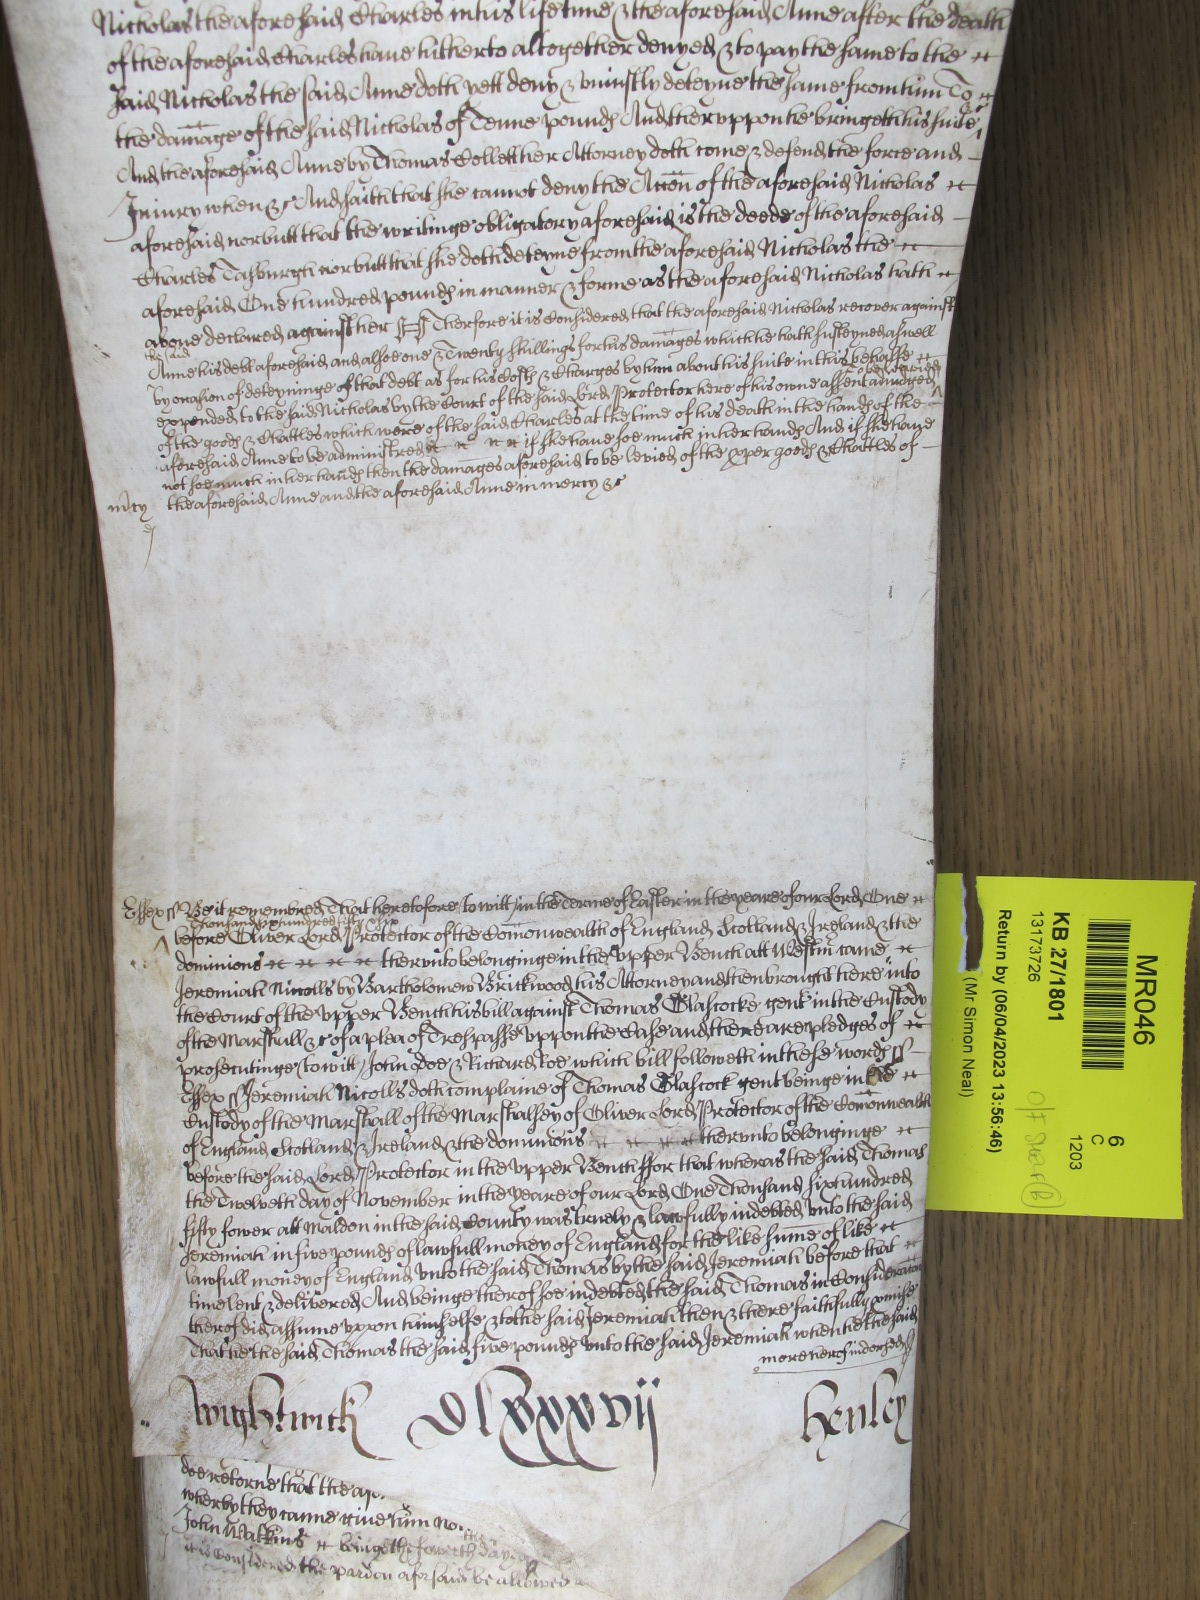 Nicholas the aforesaid Charles in his life time & the aforesaid Anne after the death
of the aforesaid Charles haue hitherto altogether denyed & to pay the same to the
said Nicholas the said Anne doth yett deny & vniustly deteyne the same from him To
the damage of the said Nicholas of Tenne pounds And thervppon he bringeth his suite
And the aforesaid Anne by Thomas Collett her Attorney doth come & defend the force and
Iniury when &c And saith that she cannot deny the Accon of the aforesaid Nicholas
aforesaid nor butt that the writinge obligatory aforesaid is the deede of the aforesaid
Charles Tasburgh nor butt that she doth deteyne from the aforesaid Nicholas the
aforesaid One hundred pounds in manner & forme as the aforesaid Nicholas hath
aboue declared against her Therfore it is Considered that the aforesaid Nicholas recover against
the said
Anne his debt aforesaid and alsoe one & Twenty shillings for his damages which he hath susteyned aswell
by occasion of deteyninge of that debt as for his Costs & Charges by him about his suite in this behalfe
to be levied
expended to the said Nicholas by the Court of the said Lord Protector here of his owne assent adiudged
of the goods & Chattles which were of the said Charles at the time of his death in the hands of the
aforesaid Anne to be administred if she haue soe much in her hands And if she haue
not soe much in her hands then the damages aforesaid to be levied of the pper goods & Chattles of
mcy the aforesaid Anne and the aforesaid Anne in mercy &c
Essex ss Be it remembred That heretofore to witt in the Terme of Easter in the yeare of our Lord One
Thousand six hundred fifty six
before Oliver Lord Protector of the Comonwealth of England Scotland & Ireland & the
dominions thervnto belonginge in the Vpper Bench att Westm came
Jeremiah Nicolls by Bartholomew Brickwood his Attorney and then brought here into
the Court of the Vpper Bench his bill against Thomas Glascocke gent in the Custody
of the Marshall &c of a plea of Trespasse vppon the Case and there are pledges of
prosecutinge to witt John Doe & Richard Roe which bill followeth in these words ss
Essex ss Jeremiah Nicolls doth complaine of Thomas Glascock gent beinge in the
Custody of the Marshall of the Marshalsey of Oliver Lord Protector of the Comonwealth
of England Scotland & Ireland & the dominions thervnto belonginge
before the said Lord Protector in the Vpper Bench ffor that wheras the said Thomas
the Twelveth day of November in the yeare of our Lord One Thousand six hundred
fifty fower att Maldon in the said County was truely & lawfully indebted vnto the said
Jeremiah in five pounds of lawfull money of England for the like sume of like
lawfull money of England vnto the said Thomas by the said Jeremiah before that
time lent & delivered And beinge therof soe indebted the said Thomas in Consideracon
therof did assume vppon himselfe & to the said Jeremiah then & there faithfully pmise
That he the said Thomas the said five pounds vnto the said Jeremiah when he the said
more hereof indorsed
Wightwick Dlxxxvij Henley
doe retorne that the
wherby they canne give him no
John Watkins beinge the fowerth day
it is Considered the pardon aforsaid be allowed
MR046
KB 27/1801
13173726
Return by (06/04/2023 13:56:46)
(Mr Simon Neal)
6
C
1203